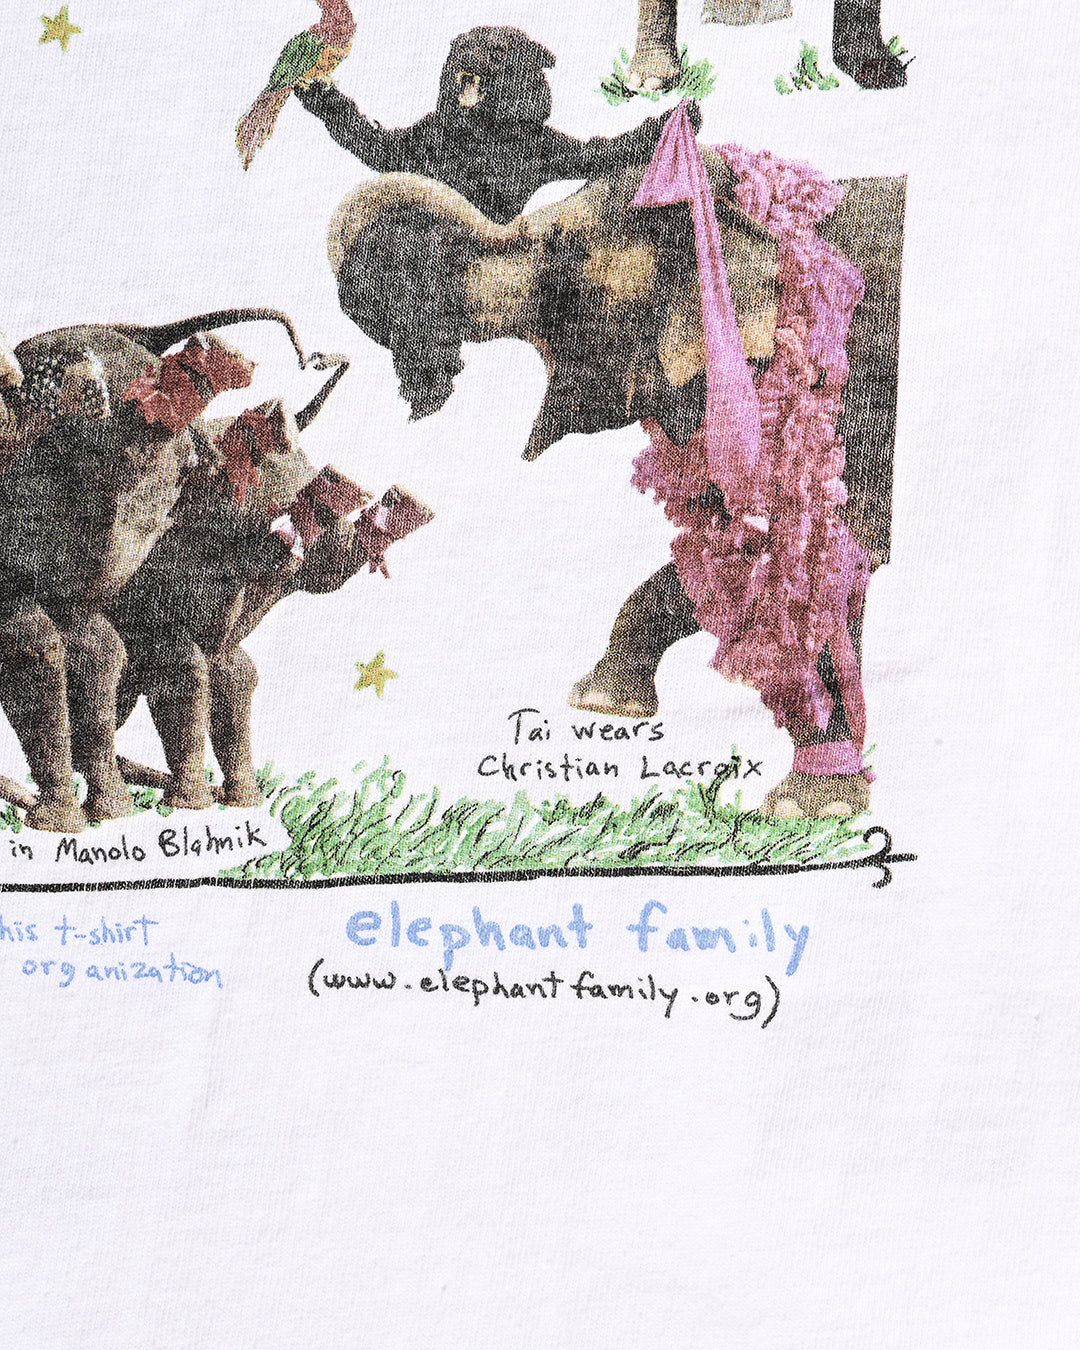 Tai wears
Christian Lacroix
in Manolo Blahnik
his t-shirt
organization
elephant family
(www.elephantfamily.org)